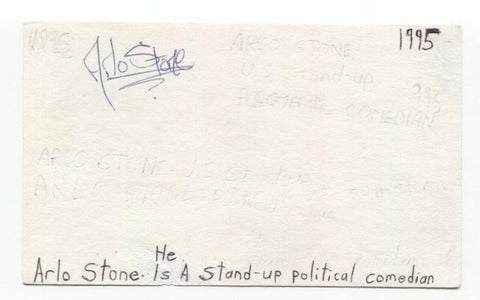 1995
Arlo Stone
ARLO STONE-
U.S Stand-up
COMEDIAN
ARLO STONE- U.S Stand-up
ARLO STONE Political
He
Arlo Stone- Is A Stand-up political comedian